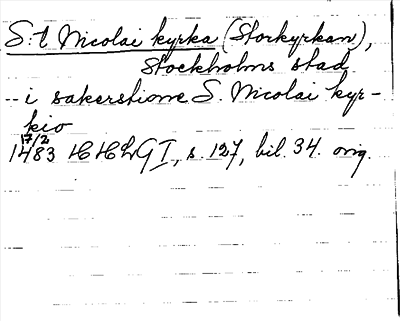 S:t Nicolai kyrka (Storkyrkan),
Stockholms stad
-- i sakerstione S. Nicolai kyr-
kio
17/2
1483 HHLG I, s. 127, bil. 34. orig.